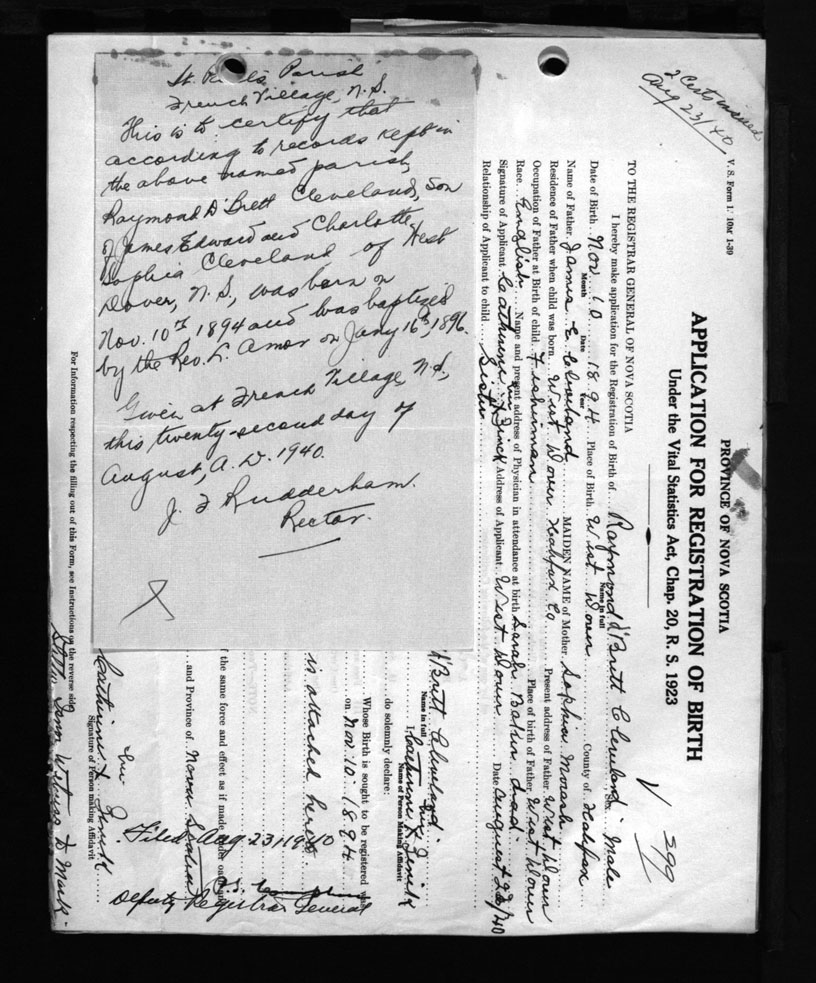 St. Paul's Parish
French Village, N.S.
This is to certify that
according to records kept in
the above named parish,
Raymond D'Brett Cleveland, Son
of James Edward and Charlotte
Sophia Cleveland of West
Dover, N.S., was born on
Nov. 10th 1894 and was baptized
by the Rev. L. Amor on Jany 16th, 1896.
Given at French Village, N.S.,
this twenty-second day of
August, A.D. 1940.
J. F. Rudderham.
Rector.
2 Certs issued
Aug 23/40
V. S. Form 1. 10M 1-39
PROVINCE OF NOVA SCOTIA
APPLICATION FOR REGISTRATION OF BIRTH
Under the Vital Statistics Act, Chap. 20, R. S. 1923
TO THE REGISTRAR GENERAL OF NOVA SCOTIA
I hereby make application for the Registration of Birth of Raymond D'Brett Cleveland. Male
Name in full
Date of Birth Nov. 10 1894 Place of Birth West Dover County of Halifax
Month Date Year
Name of Father James E. Cleveland MAIDEN NAME of Mother Sophia Morash
Residence of Father when child was born West Dover Halifax Co Present address of Father West Dover
Occupation of Father at Birth of child Fisherman Place of birth of Father West Dover
Race English Name and present address of Physician in attendance at birth Sarah Baker dead.
Signature of Applicant Catherine X Address of Applicant West Dover Date August 22/40
Relationship of Applicant to child Sister
D'Brett Cleveland.
Name in full
I, Catherine X
Name of Person Making Affidavit
do solemnly declare:
Whose Birth is sought to be registered
on Nov. 10. 1894
is attached hereto
the same force and effect as if made under
and Province of Nova Scotia
Filed Aug 23, 1940
Deputy Registrar General
Catherine X
Signature of Person making Affidavit
Witness to Mark.
For Information respecting the filling out of this Form, see Instructions on the reverse side